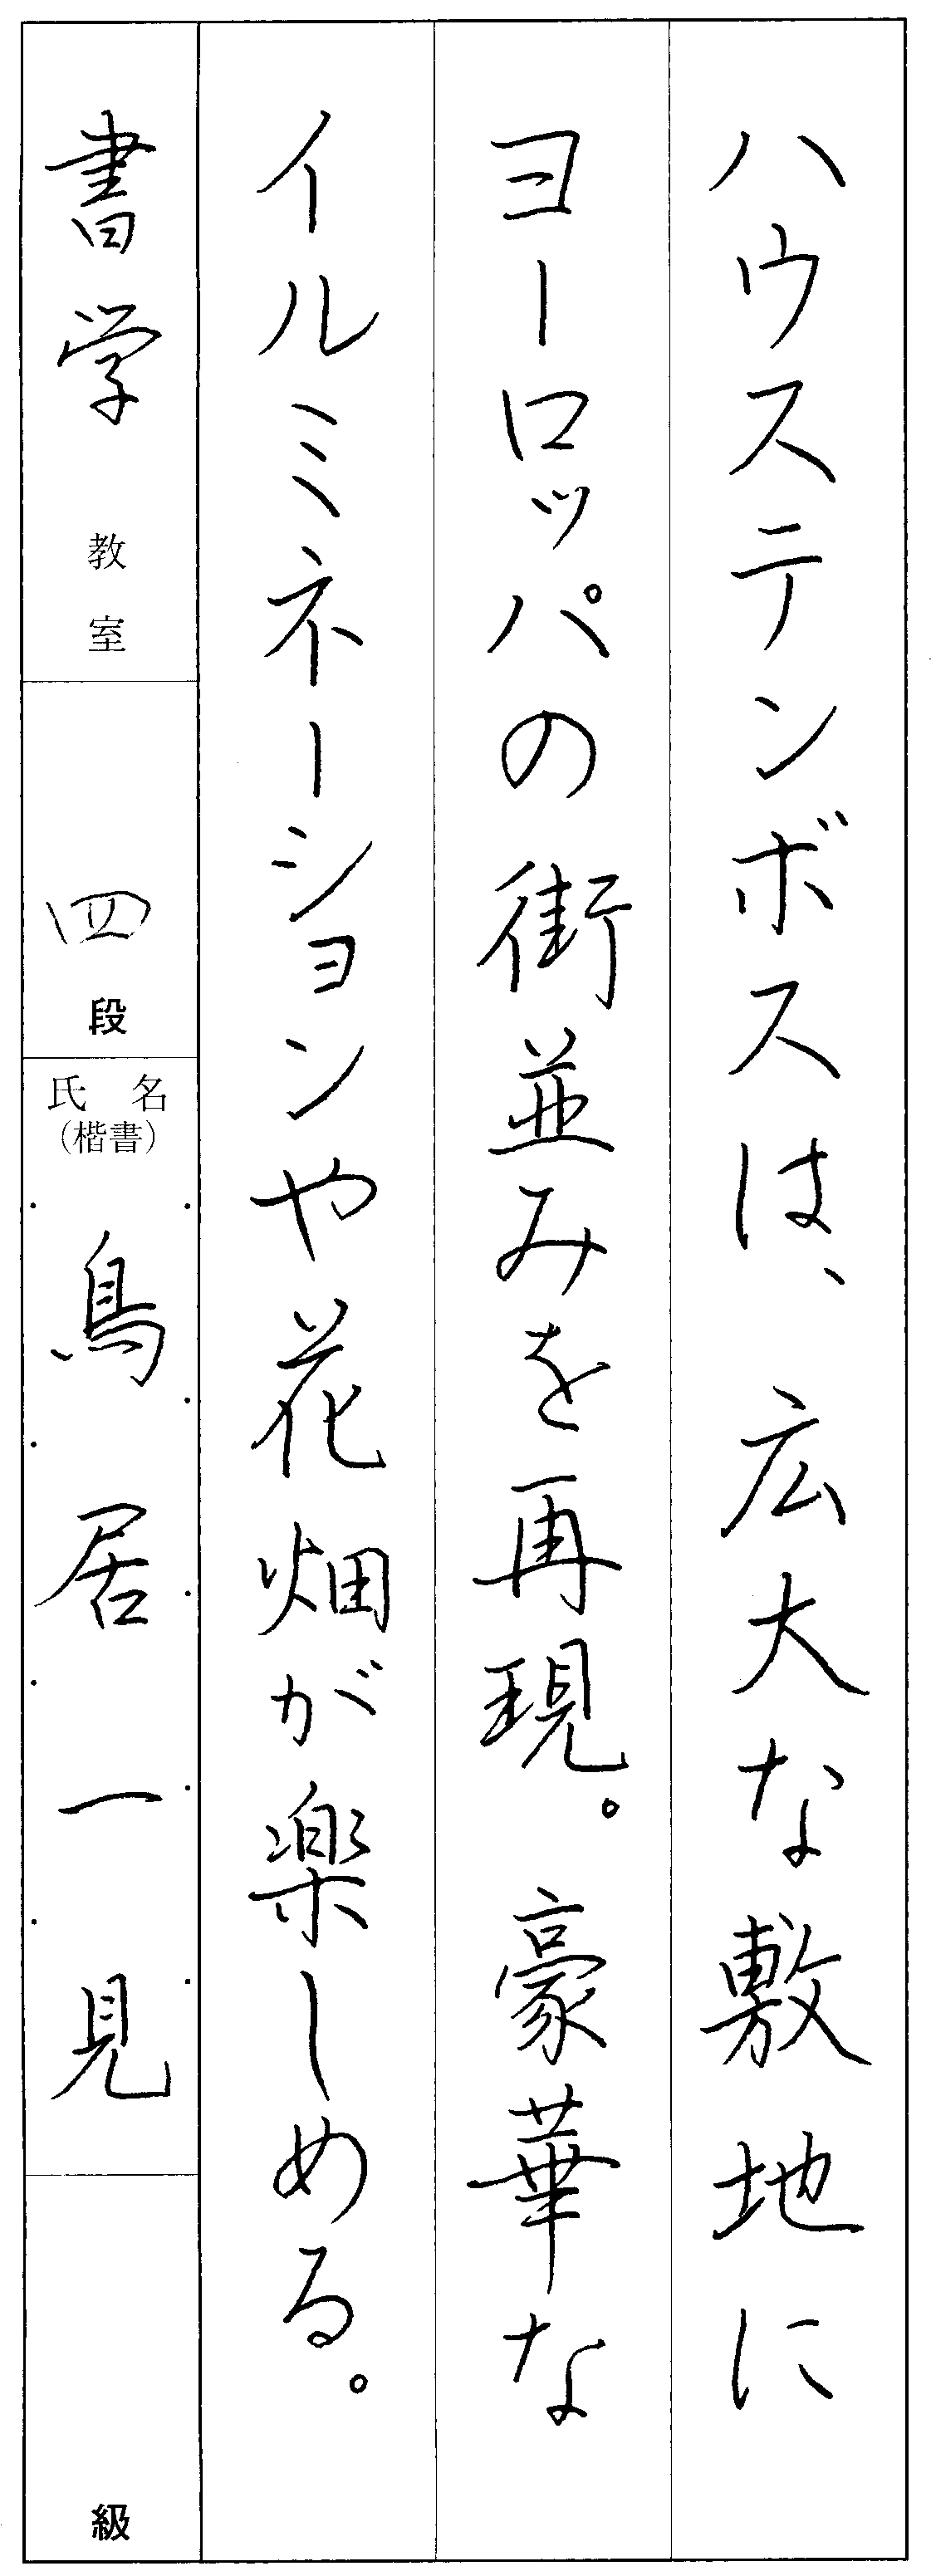 ハウステンボスは、広大な敷地に
ヨーロッパの街並みを再現。豪華な
イルミネーションや花畑が楽しめる。
書学教室
四段
氏名
(楷書)
鳥居一見
級